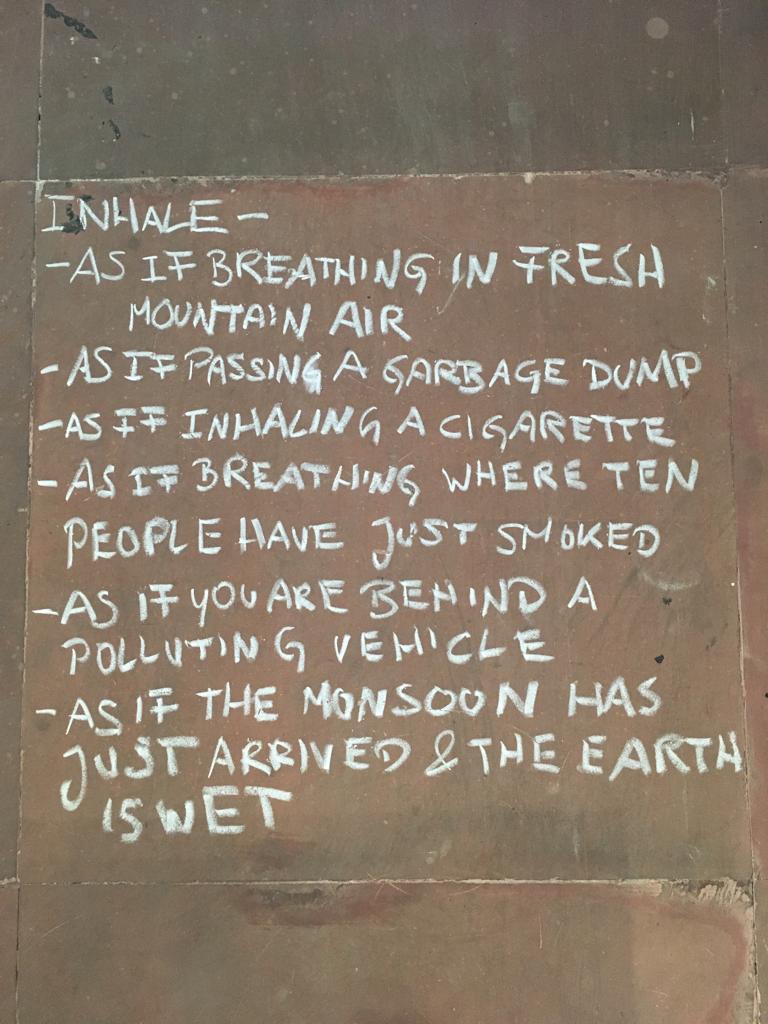 INHALE -
- AS IF BREATHING IN FRESH
MOUNTAIN AIR
- AS IF PASSING A GARBAGE DUMP
- AS IF INHALING A CIGARETTE
- AS IF BREATHING WHERE TEN
PEOPLE HAVE JUST SMOKED
- AS IF YOU ARE BEHIND A
POLLUTING VEHICLE
- AS IF THE MONSOON HAS
JUST ARRIVED & THE EARTH
IS WET